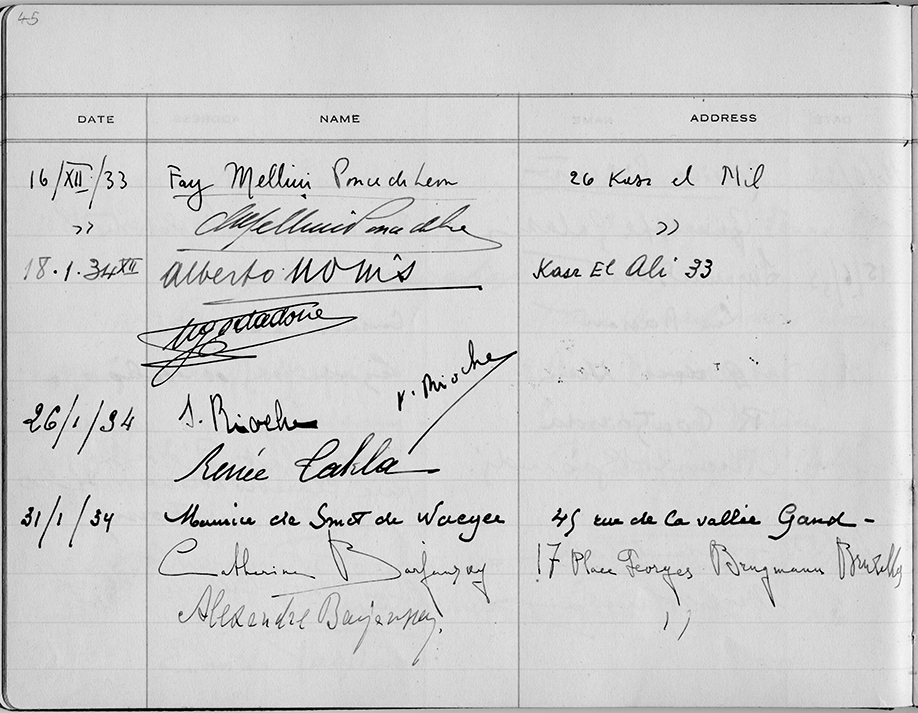 45
DATE NAME ADDRESS
16/XII/33 Fay Mellini Ponce de Leon 26 Kasr el Nil
" "
18.1.34 XII Alberto Nonis Kasr El Ali 33
V. Rioche
26/1/34 J. Rioche
Renée Cakla
31/1/34 Maurice de Smet de Naeyer 45 rue de la vallée Gand -
Catherine 17 Place Georges Brugmann Bruxelles
Alexandre "